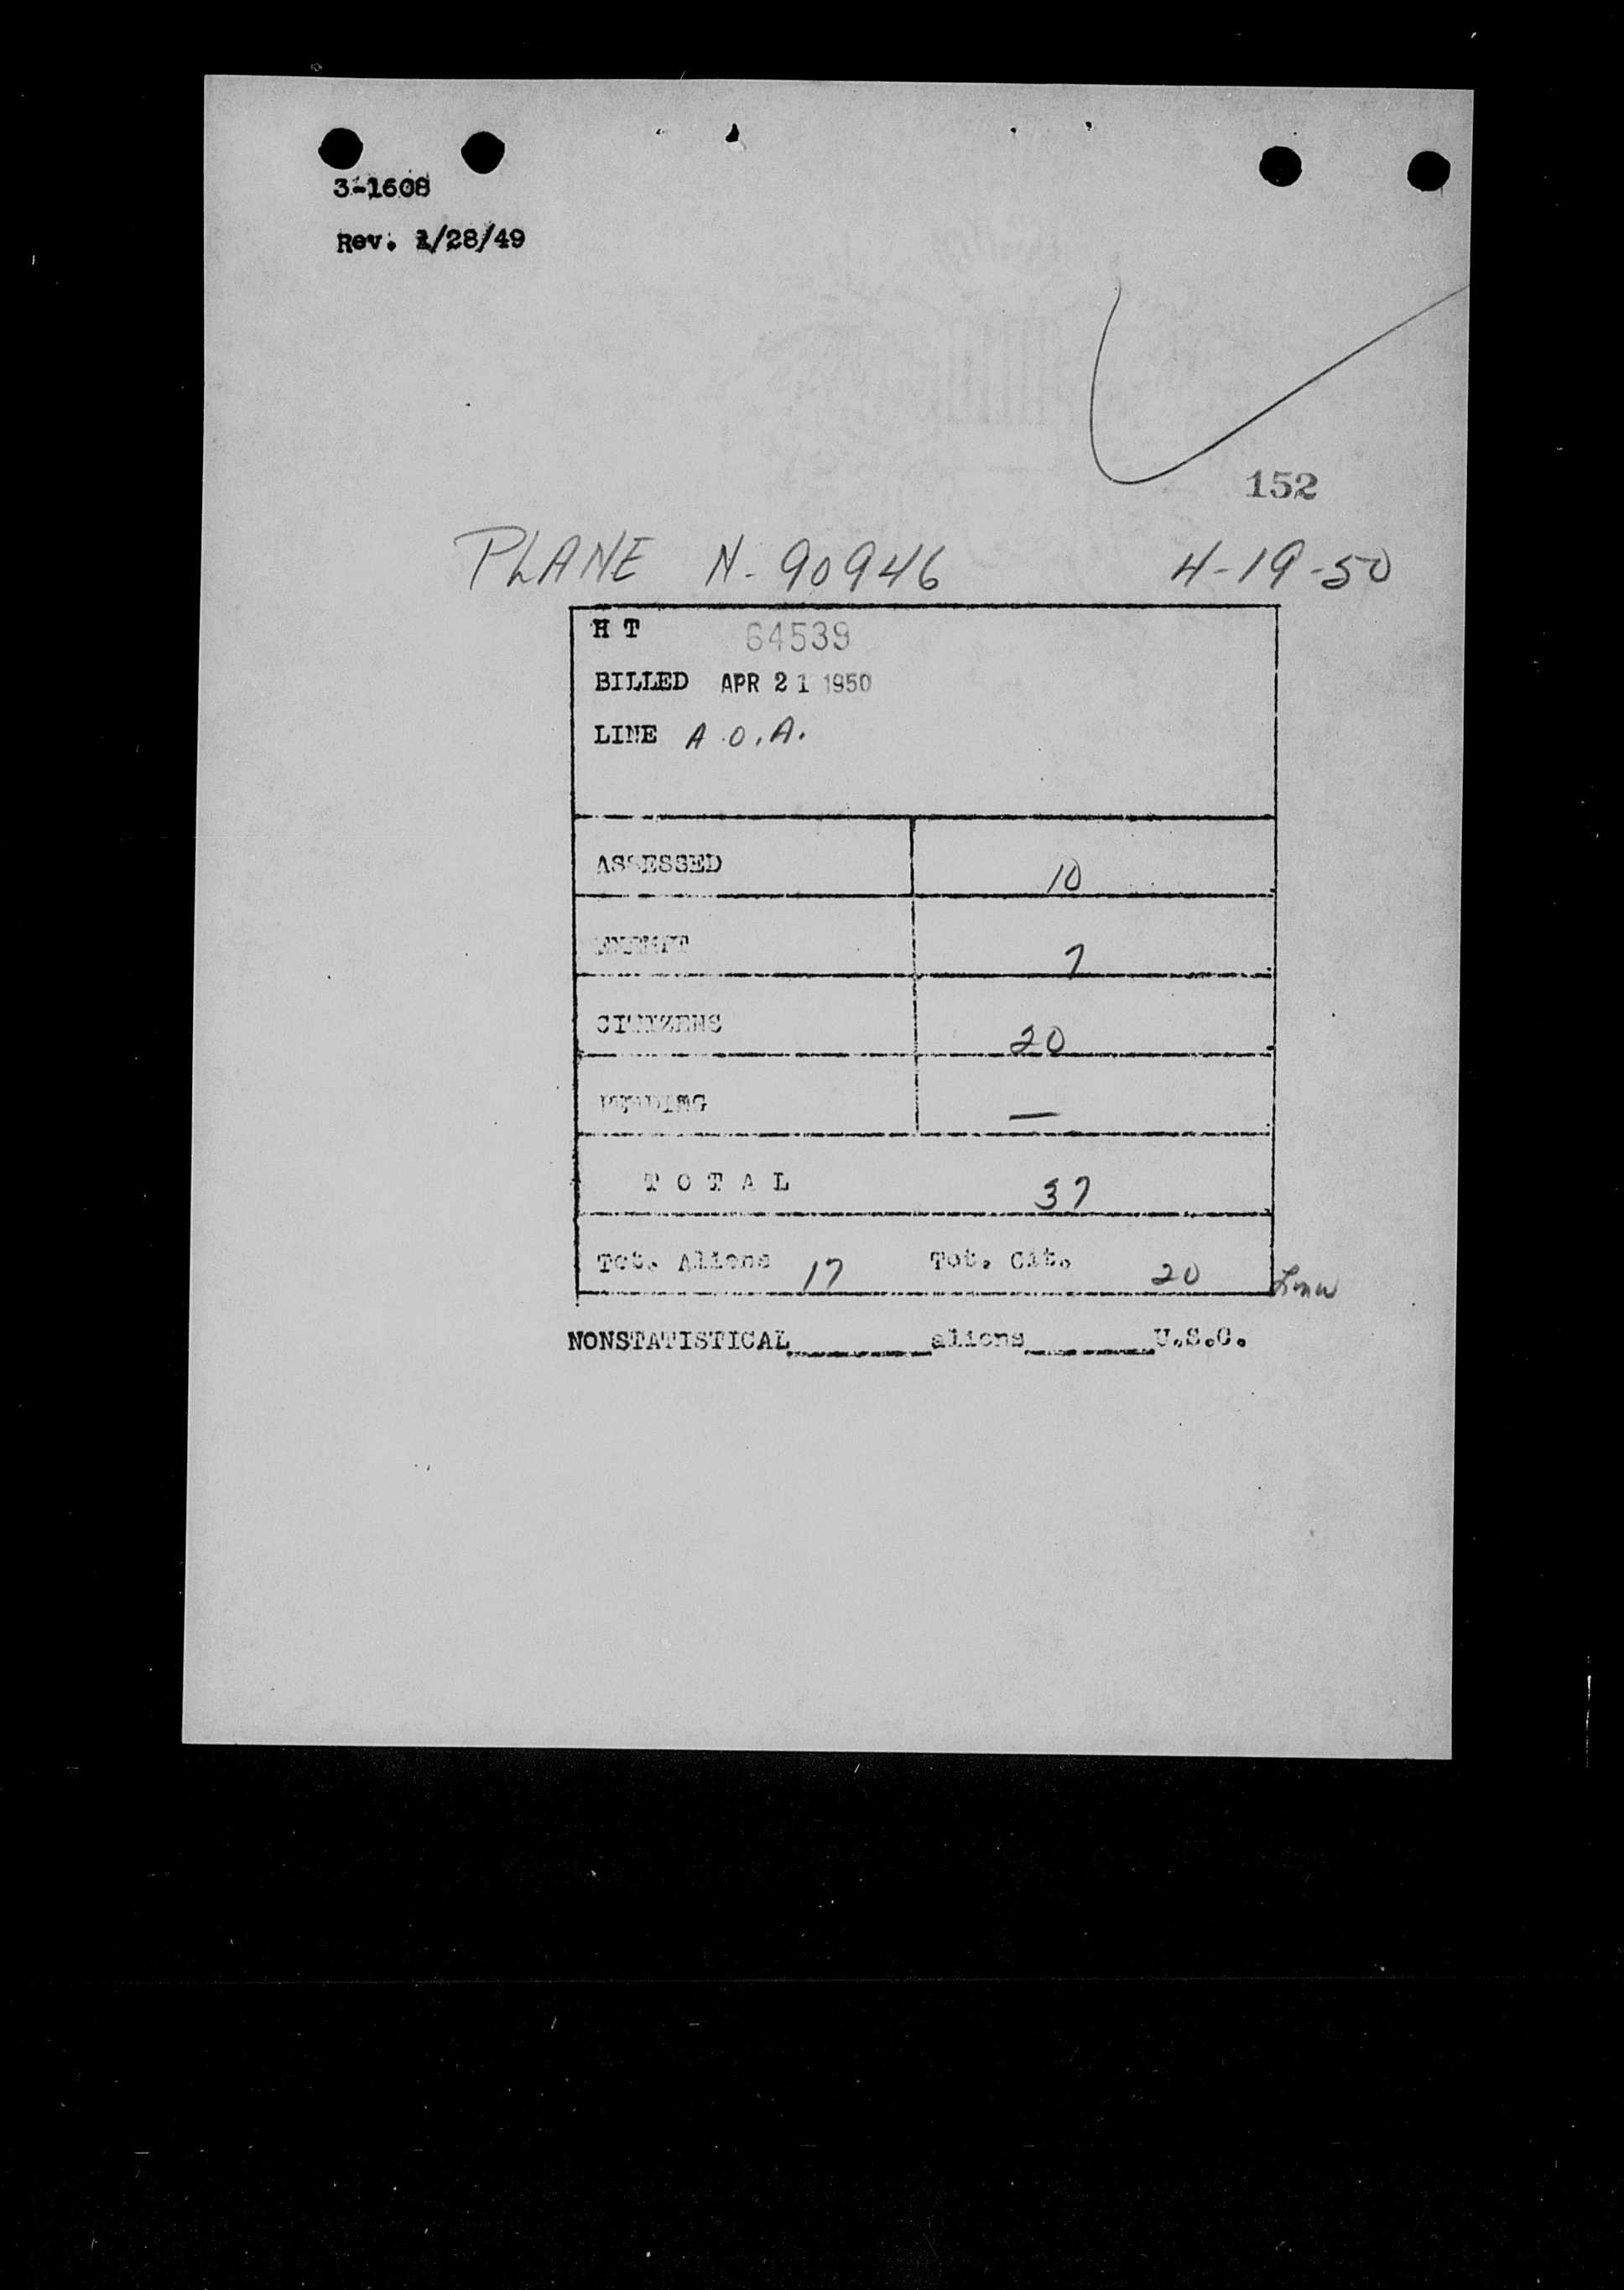 3-1608
Rev. 1/28/49
152
PLANE N-90946 4-19-50
H T 64539
BILLED APR 21 1950
LINE A.O.A.
ASSESSED 10
EXEMPT 7
CITIZENS 20
PENDING —
T O T A L 37
Tot. Aliens 17 Tot. Cit. 20
NONSTATISTICAL________aliens________U.S.C.